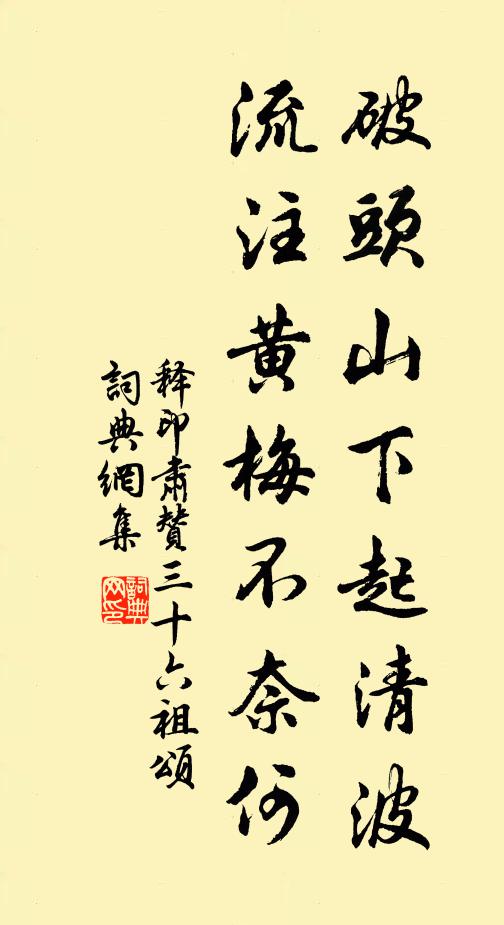 破頭山下起清波
流注黄梅不奈何
释印肅贊三十六祖頌
詞典網集
詞典网印